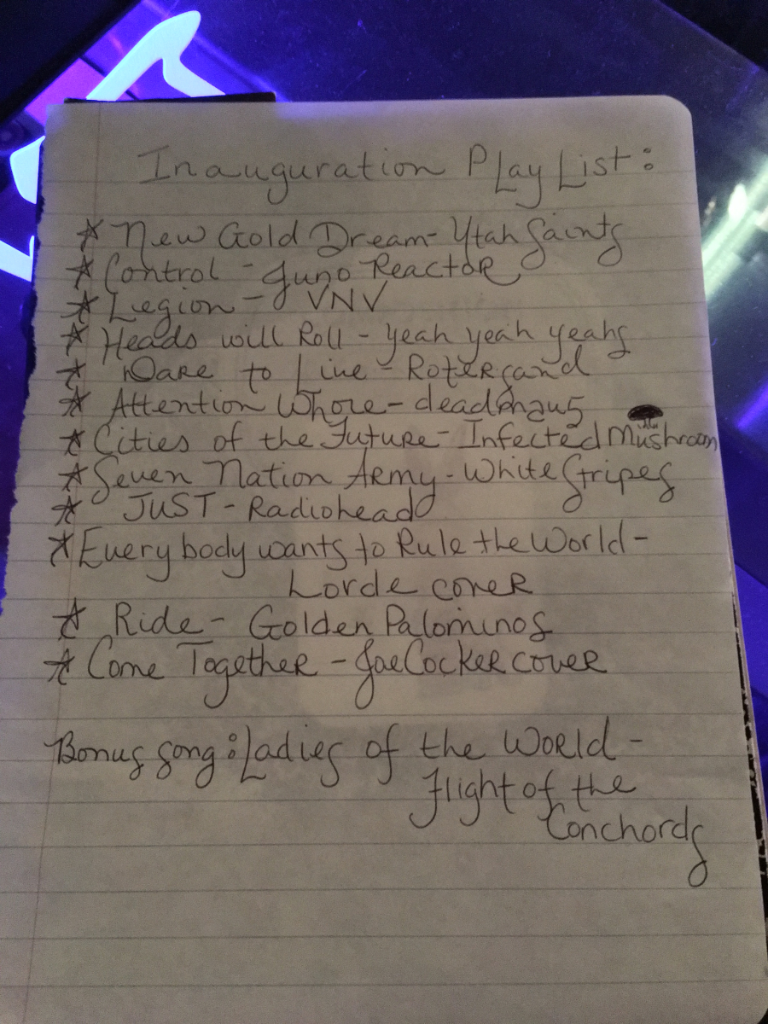 Inauguration Play List:
* New Gold Dream - Utah Saints
* Control - Juno Reactor
* Legion - VNV
* Heads will Roll - yeah yeah yeahs
* Dare to Live - Rotersand
* Attention Whore - deadmau5
* Cities of the Future - Infected Mushroom
* Seven Nation Army - White Stripes
* JUST - Radiohead
* Everybody wants to Rule the World -
Lorde cover
* Ride - Golden Palominos
* Come Together - Joe Cocker cover
Bonus song: Ladies of the World -
Flight of the
Conchords